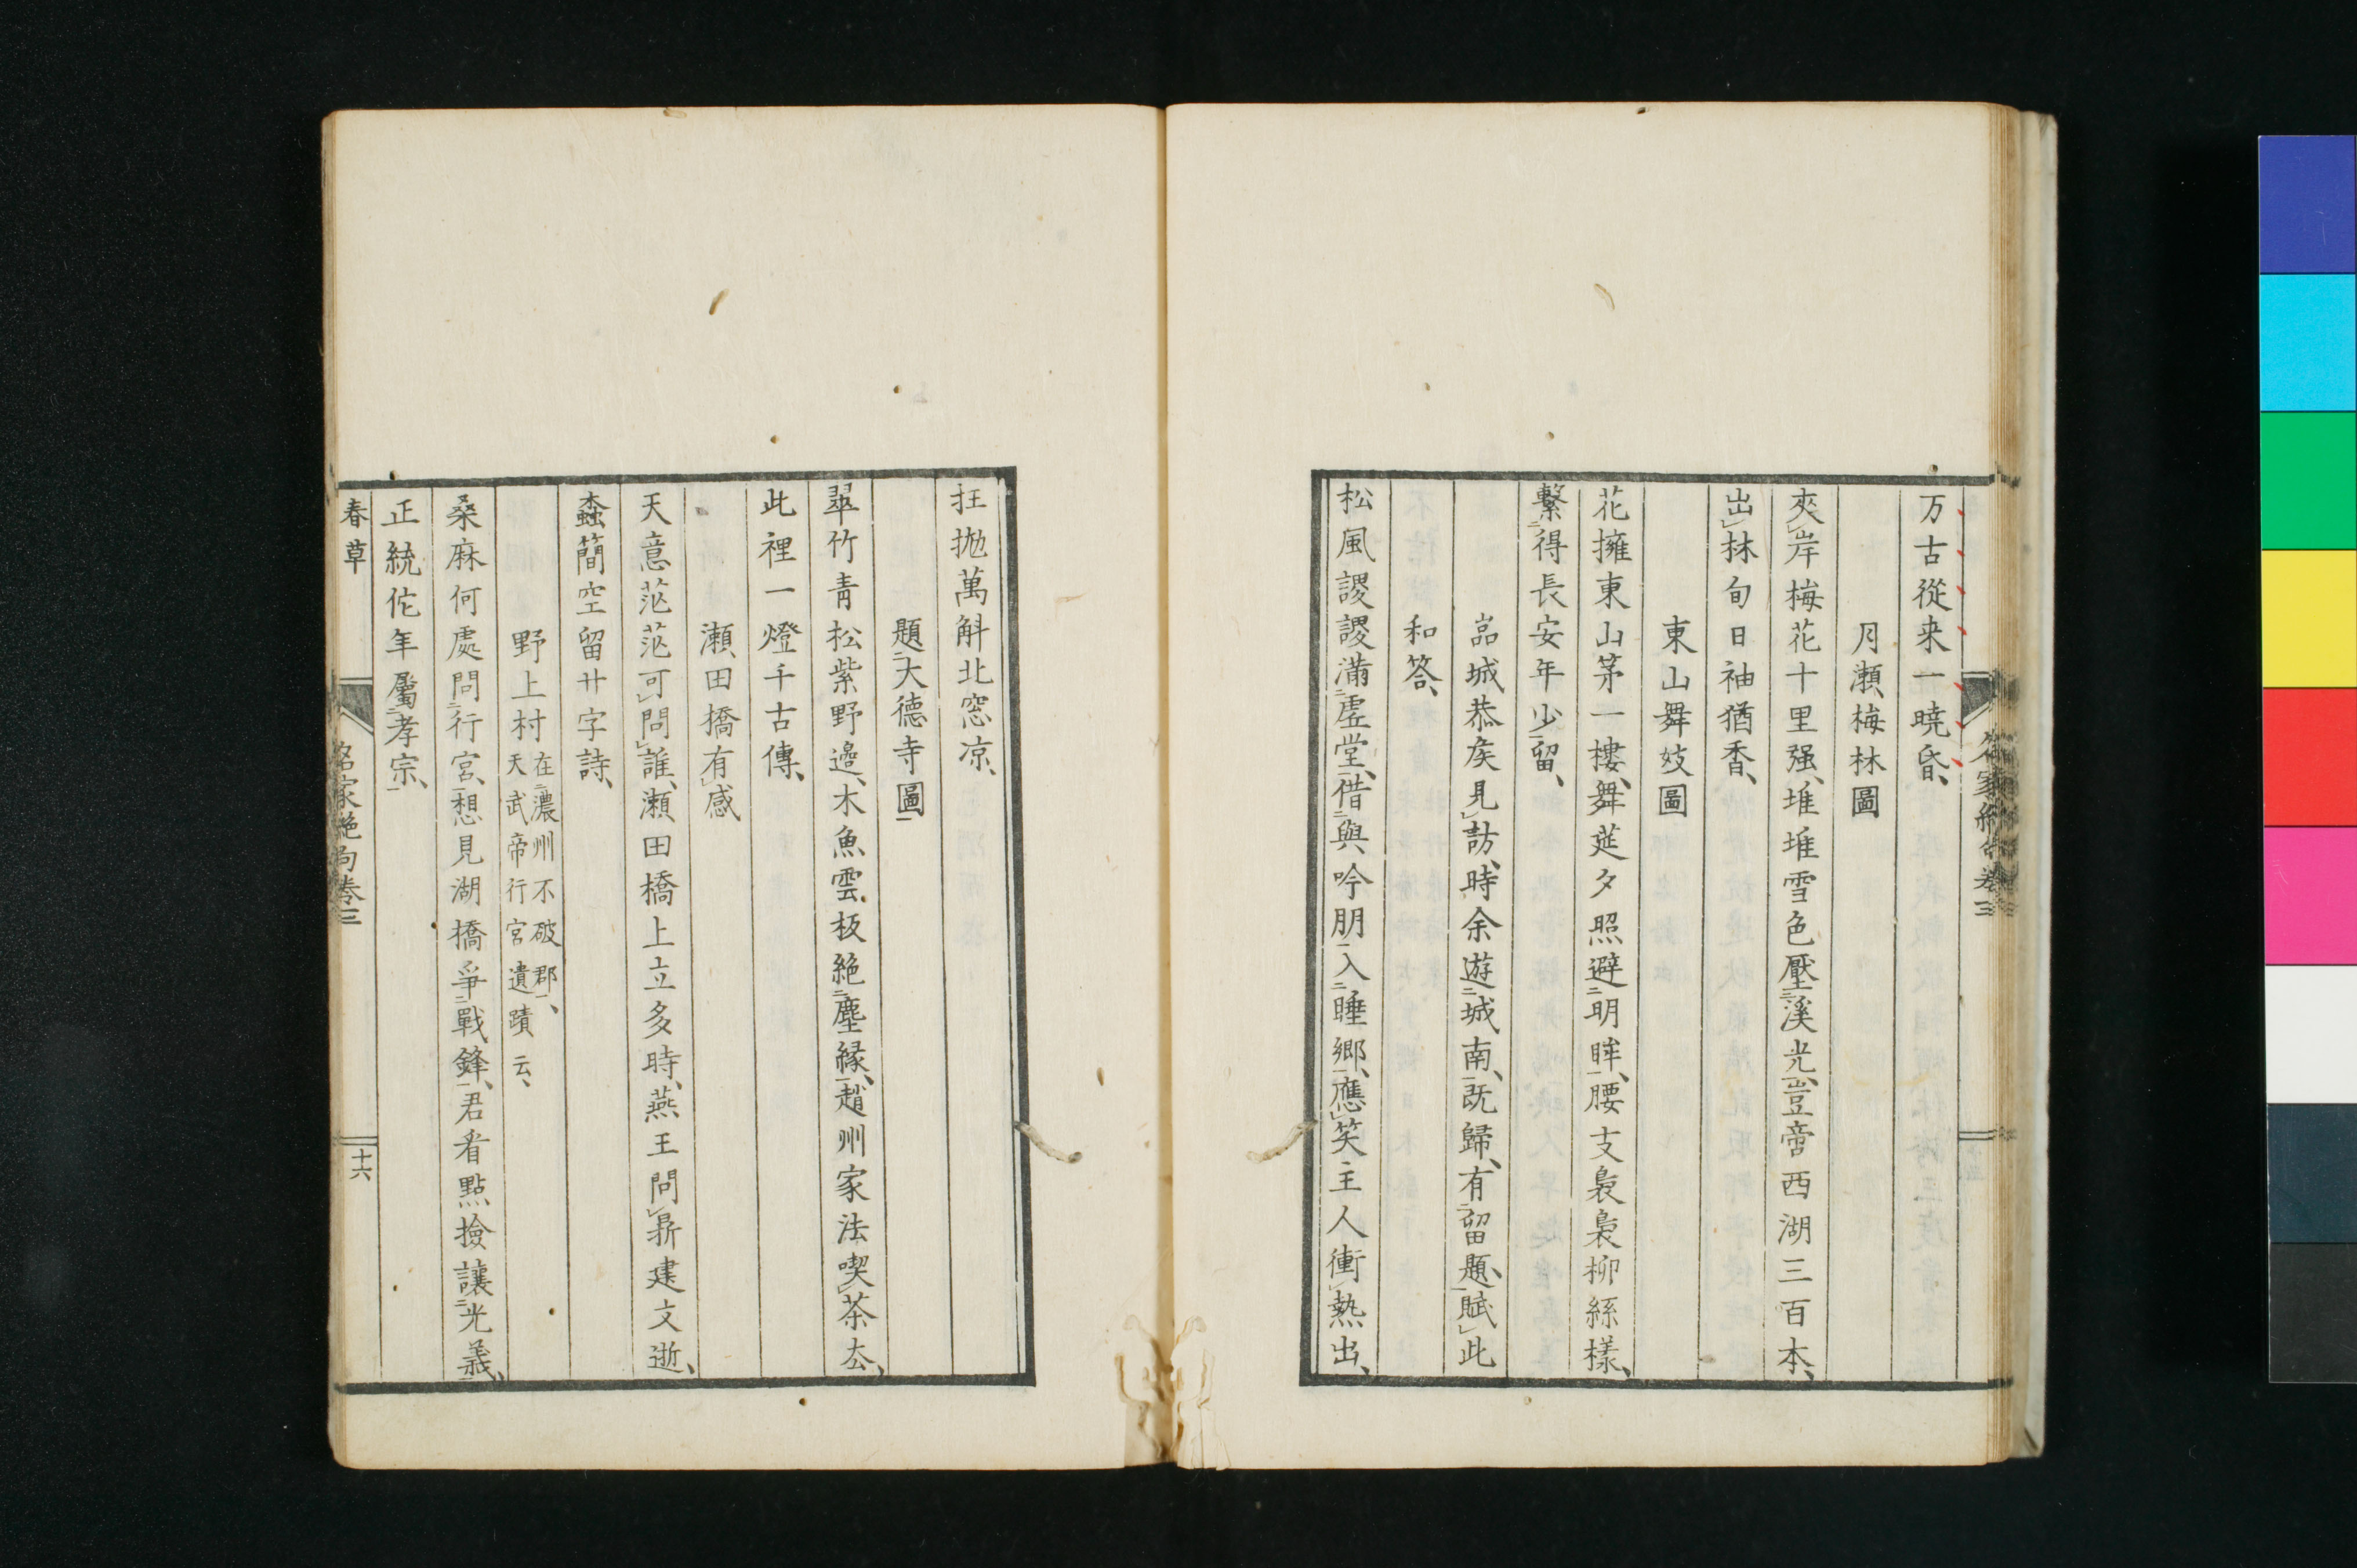 万古從来一曉昏、
月瀨梅林圖
夾岸梅花十里强、堆堆雪色壓溪光、豈啻西湖三百本、
出林旬日袖猶香、
東山舞妓圖
花擁東山第一樓、舞莚夕照避明眸、腰支裊裊柳絲樣、
繫得長安年少留、
嵓城恭矦見訪、時余遊城南、既歸、有留題、賦此
和答、
松風謖謖滿虛堂、借與吟朋入睡鄉、應笑主人衝熱出、
抂拋萬斛北窓凉、
題大德寺圖
翠竹青松紫野邉、木魚雲板絶塵緣、趙州家法喫茶厺、
此裡一燈千古傳、
瀨田橋有感
天意茫茫可問誰、瀨田橋上立多時、燕王問鼎建文逝、
蠧簡空留廿字詩、
野上村 在濃州不破郡、
天武帝行宮遺蹟云、
桑麻何處問行宮、想見湖橋爭戰鋒、君看點撿讓光義、
正統佗年屬孝宗、
春草
名家絶句卷三
十六